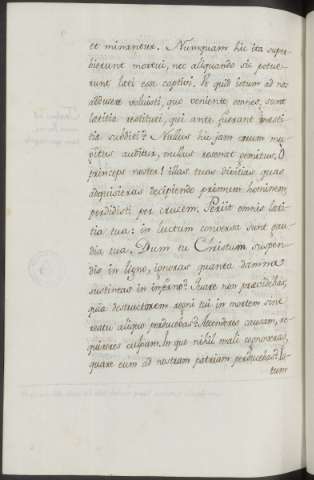 et minantur. Numquam hic ita super
bierunt mortui, nec aliquando sic potue
runt læti esse captivi. Ut quid istum ad nos
adducere voluisti, quo veniente omnes, sunt
lætitia restituti, qui ante fuerant tristi
tiæ subditi? Nullus hic jam eorum mu
gitus auditur, nullus resonat gemitus. O
princeps noster! illas tuas divitias quas
adquisieras decipiendo primum hominem
perdidisti per crucem. Periit omnis læti
tia tua: in luctum conversa sunt gau
dia tua. Dum tu Christum suspen
dis in ligno, ignoras quanta damna
sustineas in inferno? Quare non prævidebas,
quia destructorem regni tui in mortem sine
reatu aliquo perducebas? Attenderes causam, re
quireres culpam. In quo nihil mali cognoveras,
quare eum ad nostram patriam perducebas? Is
tum